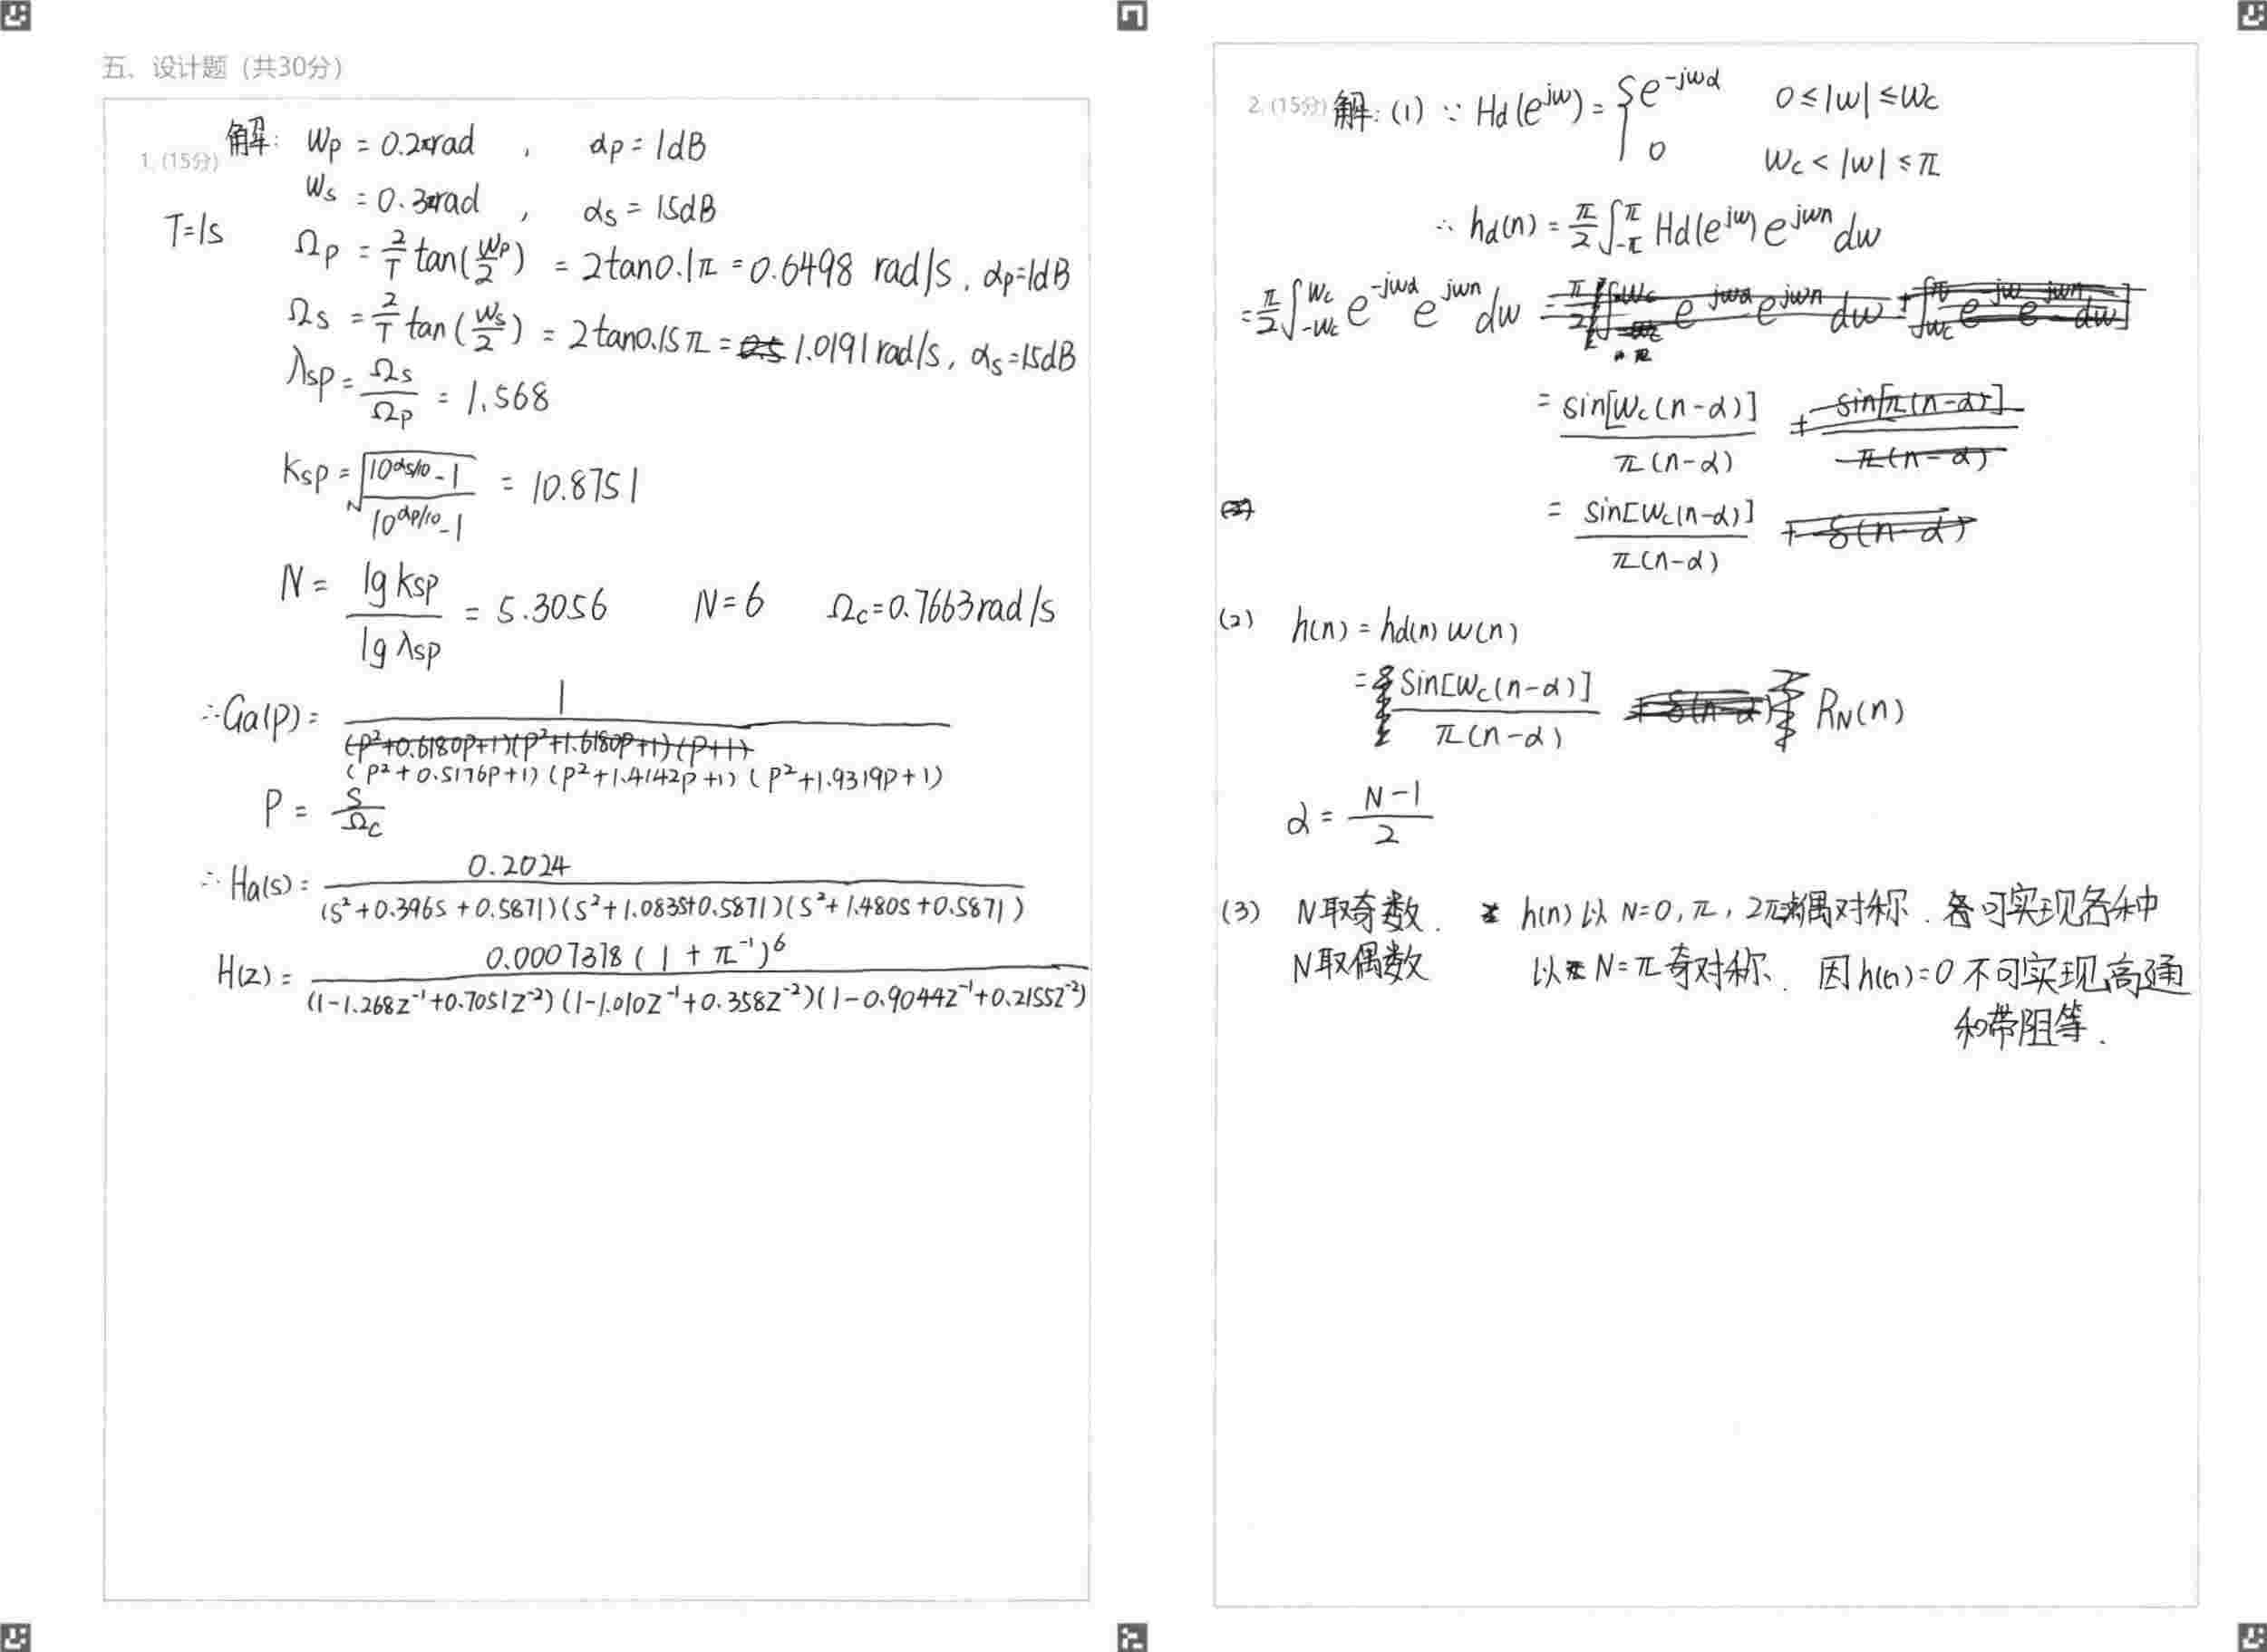 五、设计题（共30分）
1. (15分) 解: Wp = 0.2πrad , αp = 1dB
Ws = 0.3πrad , αs = 15dB
T=1s
Ωp = 2/T tan(Wp/2) = 2tan0.1π = 0.6498 rad/s, αp=1dB
Ωs = 2/T tan(Ws/2) = 2tan0.15π = 1.0191 rad/s, αs=15dB
λsp = Ωs/Ωp = 1.568
Ksp = √((10^(αs/10) - 1)/(10^(αp/10) - 1)) = 10.8751
N = lg Ksp / lg λsp = 5.3056 N=6 Ωc=0.7663rad/s
∴ Ga(p) = 1 / (p²+0.5176p+1)(p²+1.4142p+1)(p²+1.9319p+1)
P = S/Ωc
∴ Ha(s) = 0.2024 / (s²+0.396s+0.5871)(s²+1.083s+0.5871)(s²+1.480s+0.5871)
H(z) = 0.0007378(1+π⁻¹)⁶ / (1-1.268z⁻¹+0.7051z⁻²)(1-1.010z⁻¹+0.358z⁻²)(1-0.9044z⁻¹+0.2155z⁻²)
2. (15分) 解: (1) ∵ Hd(e^jw) = { e^-jwα 0≤|w|≤Wc
0 Wc<|w|≤π
∴ hd(n) = π/2 ∫_-π^π Hd(e^jw) e^jwn dw
= π/2 ∫_-Wc^Wc e^-jwα e^jwn dw
= sin[Wc(n-α)] / π(n-α)
= sin[Wc(n-α)] / π(n-α)
(2) h(n) = hd(n) w(n)
= sin[Wc(n-α)] / π(n-α) RN(n)
α = (N-1)/2
(3) N取奇数. h(n)以 N=0,π,2π偶对称. 各可实现各种
N取偶数 以N=π奇对称. 因h(n)=0不可实现高通
和带阻等.